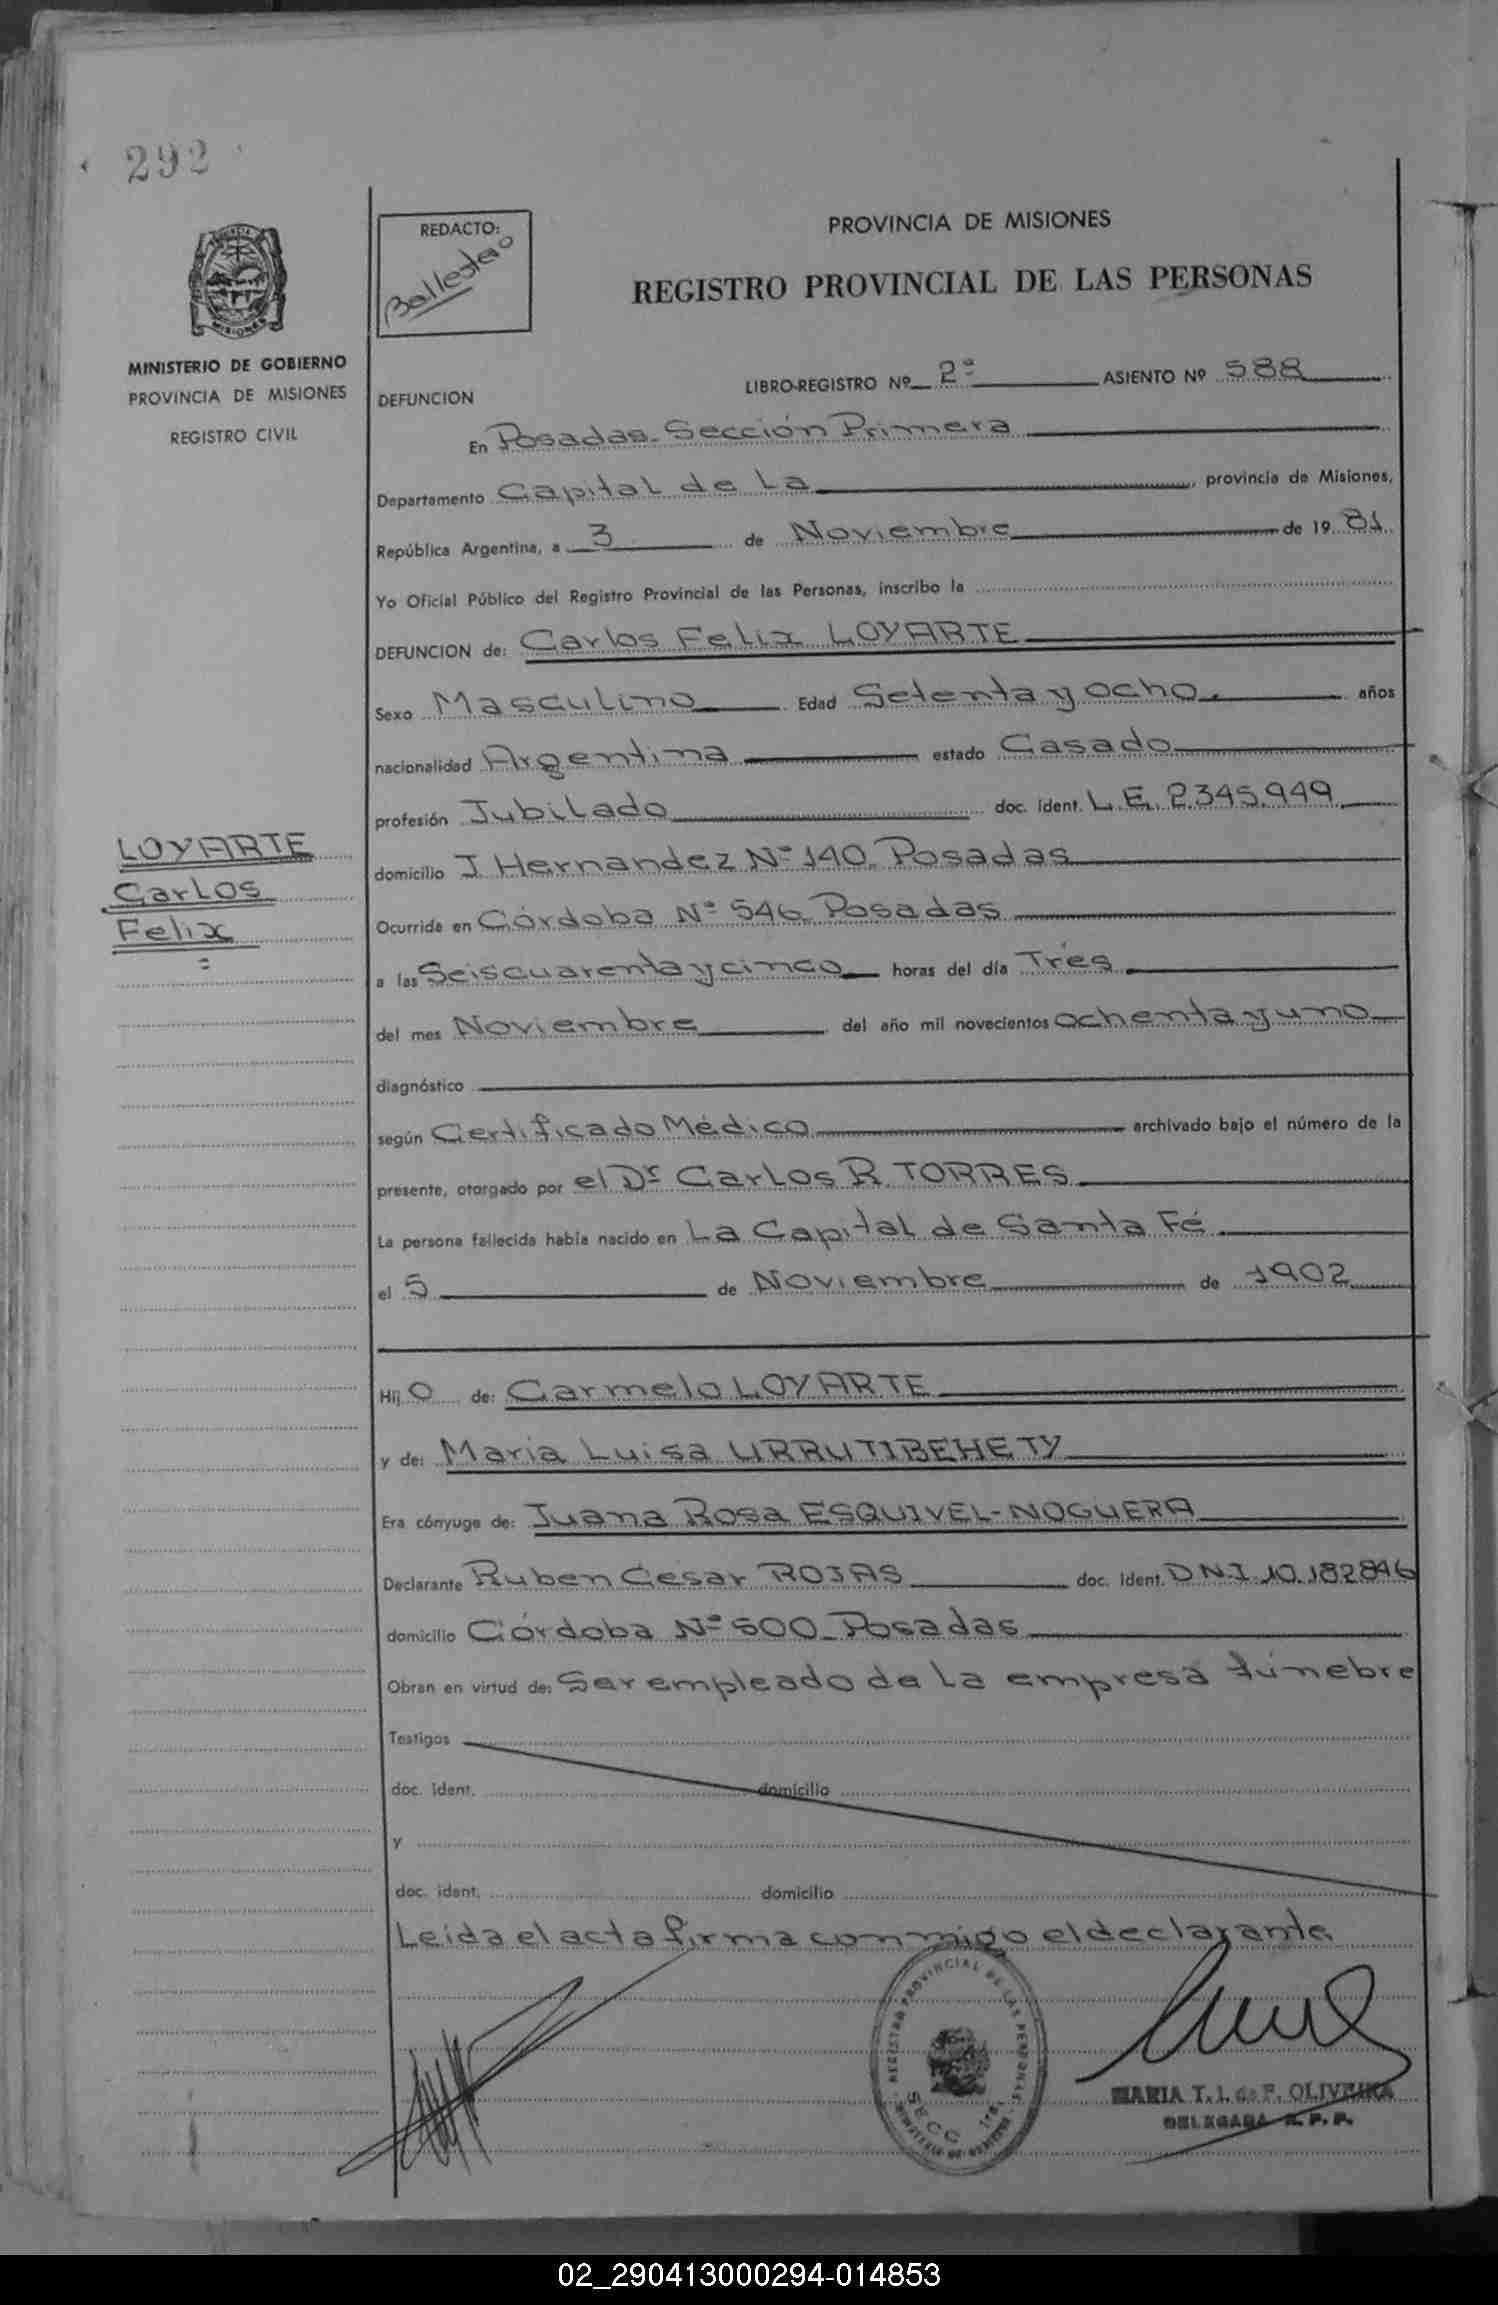 292
REDACTO:
Ballestero
PROVINCIA DE MISIONES
REGISTRO PROVINCIAL DE LAS PERSONAS
MISIONES
MINISTERIO DE GOBIERNO
PROVINCIA DE MISIONES
REGISTRO CIVIL
DEFUNCION
LIBRO-REGISTRO Nº 2º ASIENTO Nº 588
En Posadas-Sección Primera
Departamento Capital de La, provincia de Misiones,
República Argentina, a 3 de Noviembre de 19 81
Yo Oficial Público del Registro Provincial de las Personas, inscribo la
DEFUNCION de: Carlos Felix LOYARTE
Sexo Masculino Edad Setenta y ocho. años
nacionalidad Argentina estado Casado
profesión Jubilado doc. ident. L.E. 2.345.949
LOYARTE
Carlos
Felix
domicilio J. Hernandez Nº 140. Posadas
Ocurrida en Córdoba Nº 546 Posadas
a las Seis cuarenta y cinco horas del día Tres
del mes Noviembre del año mil novecientos ochenta y uno
diagnóstico
según Certificado Médico archivado bajo el número de la
presente, otorgado por el Dr Carlos R. TORRES
La persona fallecida había nacido en La Capital de Santa Fé
el 5 de Noviembre de 1902
Hij o de: Carmelo LOYARTE
y de: Maria Luisa URRUTIBEHETY
Era cónyuge de: Juana Rosa ESQUIVEL-NOGUERA
Declarante Ruben Cesar ROJAS doc. ident. D.N.I. 10.182.846
domicilio Córdoba Nº 500-Posadas
Obran en virtud de: Ser empleado de la empresa fúnebre
Testigos
doc. ident. domicilio
y
doc. ident. domicilio
Leida el acta firma conmigo el declarante.
REGISTRO PROVINCIAL DE LAS PERSONAS
SECC. 1ra.
MARIA T. I. de F. OLIVEIRA
DELEGADA R. P. P.
02_290413000294-014853